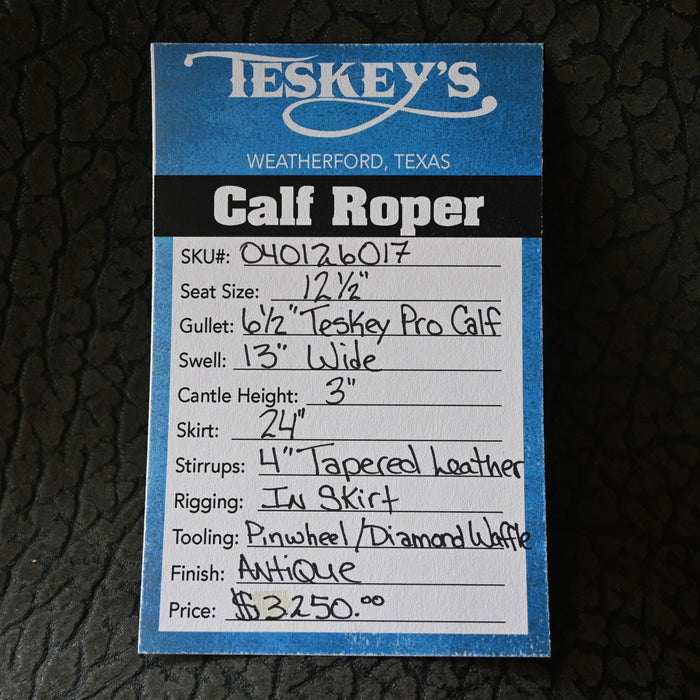 TESKEY'S
WEATHERFORD, TEXAS
Calf Roper
SKU#: 040126017
Seat Size: 12 1/2"
Gullet: 6 1/2" Teskey Pro Calf
Swell: 13" Wide
Cantle Height: 3"
Skirt: 24"
Stirrups: 4" Tapered Leather
Rigging: In Skirt
Tooling: Pinwheel/Diamond Waffle
Finish: Antique
Price: $3250.00